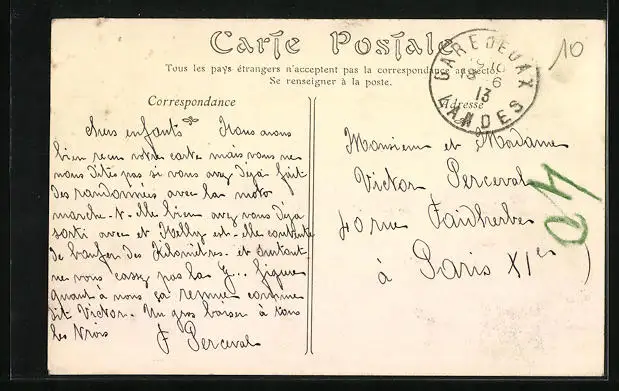 Carte Postale
Tous les pays étrangers n'acceptent pas la correspondance au recto.
Se renseigner à la poste.
Correspondance
Adresse
GARE DE DAX
18 6
13
LANDES
10
chers enfants Nous avons
bien reçu votre carte mais vous ne
nous dite pas si vous avez déjà fait
des randonnées avec la moto
marche-t-elle bien avez vous déjà
sorti avec et Nelly est-elle contente
de bouffer des Kilomètres. et surtout
ne vous cassez pas la g... figure
quant à nous ça remue comme
dit Victor. Un gros baiser à tous
les trois
J Perceval
Monsieur et Madame
Victor Perceval
40 rue Faidherbe
à Paris XIe
40